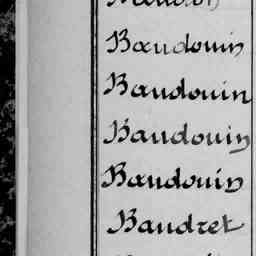 Baudouin
Baudouin
Baudouin
Baudouin
Baudret